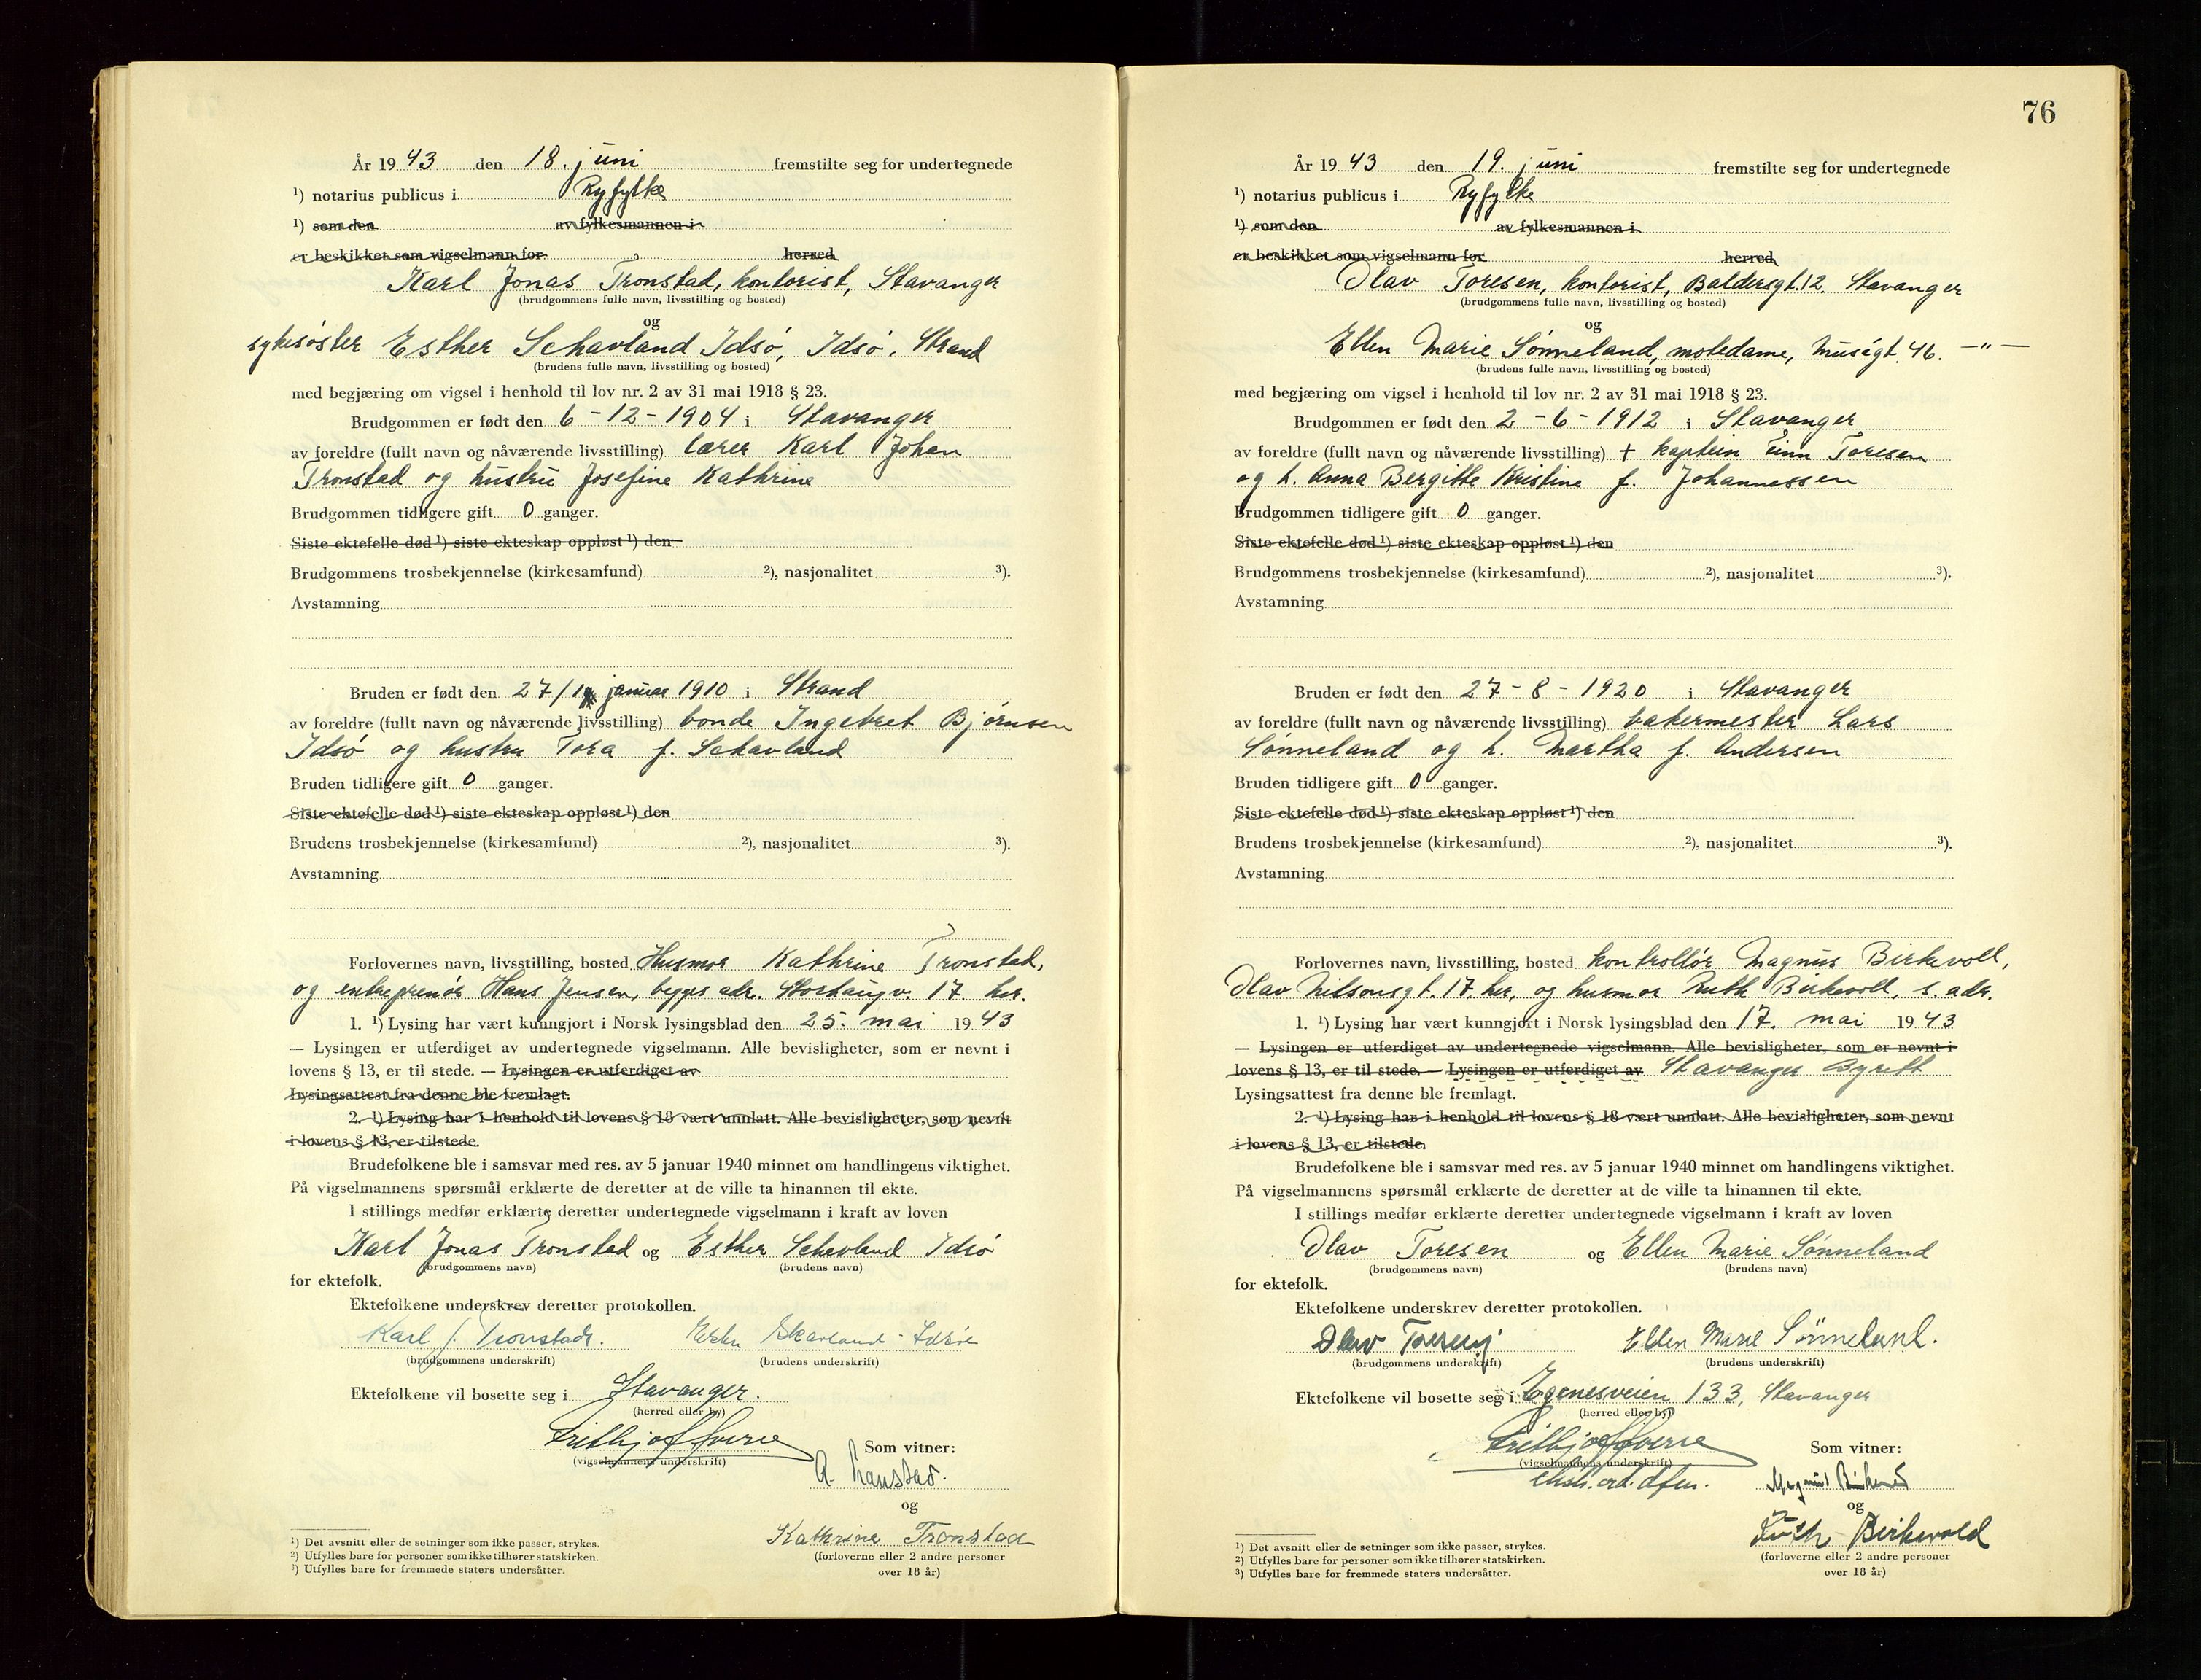 År 1943 den 18. juni fremstilte seg for undertegnede
¹) notarius publicus i Ryfylke
¹) som den av fylkesmannen i
er beskikket som vigselmann for herred
Karl Jonas Tronstad, kontorist, Stavanger
(brudgommens fulle navn, livsstilling og bosted)
og
sykesøster Esther Schavland Idsø, Idsø, Strand
(brudens fulle navn, livsstilling og bosted)
med begjæring om vigsel i henhold til lov nr. 2 av 31 mai 1918 § 23.
Brudgommen er født den 6-12-1904 i Stavanger
av foreldre (fullt navn og nåværende livsstilling) lærer Karl Johan
Tronstad og hustru Josefine Kathrine
Brudgommen tidligere gift 0 ganger.
Siste ektefelle død ¹) siste ekteskap oppløst ¹) den
Brudgommens trosbekjennelse (kirkesamfund) ²), nasjonalitet ³).
Avstamning
Bruden er født den 27/1 januar 1910 i Strand
av foreldre (fullt navn og nåværende livsstilling) bonde Ingebret Bjørnsen
Idsø og hustru Tora f. Schavland
Bruden tidligere gift 0 ganger.
Siste ektefelle død ¹) siste ekteskap oppløst ¹) den
Brudens trosbekjennelse (kirkesamfund) ²), nasjonalitet ³).
Avstamning
Forlovernes navn, livsstilling, bosted Husmor Kathrine Tronstad,
og entreprenør Hans Jensen, begges adr. Storhaugv. 17 her.
1. ¹) Lysing har vært kunngjort i Norsk lysingsblad den 25. mai 1943
— Lysingen er utferdiget av undertegnede vigselmann. Alle bevisligheter, som er nevnt i
lovens § 13, er til stede. — Lysingen er utferdiget av
Lysingsattest fra denne ble fremlagt.
2. ¹) Lysing har i henhold til lovens § 18 vært unnlatt. Alle bevisligheter, som nevnt
i lovens § 13, er tilstede.
Brudefolkene ble i samsvar med res. av 5 januar 1940 minnet om handlingens viktighet.
På vigselmannens spørsmål erklærte de deretter at de ville ta hinannen til ekte.
I stillings medfør erklærte deretter undertegnede vigselmann i kraft av loven
Karl Jonas Tronstad og Esther Schavland Idsø
(brudgommens navn) (brudens navn)
for ektefolk.
Ektefolkene underskrev deretter protokollen.
Karl J. Tronstad. Esther Skavland-Idsøe
(brudgommens underskrift) (brudens underskrift)
Ektefolkene vil bosette seg i Stavanger.
(herred eller by)
Som vitner:
(vigselmannens underskrift)
Tronstad.
og
Kathrine Tronstad
(forloverne eller 2 andre personer
over 18 år)
¹) Det avsnitt eller de setninger som ikke passer, strykes.
²) Utfylles bare for personer som ikke tilhører statskirken.
³) Utfylles bare for fremmede staters undersåtter.
76
År 1943 den 19. juni fremstilte seg for undertegnede
¹) notarius publicus i Ryfylke
¹) som den av fylkesmannen i
er beskikket som vigselmann for herred
Olav Toresen, kontorist, Baldersgt. 12. Stavanger
(brudgommens fulle navn, livsstilling og bosted)
og
Ellen Marie Sønneland, motedame, Muségt. 46. —"—
(brudens fulle navn, livsstilling og bosted)
med begjæring om vigsel i henhold til lov nr. 2 av 31 mai 1918 § 23.
Brudgommen er født den 2-6-1912 i Stavanger
av foreldre (fullt navn og nåværende livsstilling) + kaptein Finn Toresen
og h. Anna Bergitte Kristine f. Johannessen
Brudgommen tidligere gift 0 ganger.
Siste ektefelle død ¹) siste ekteskap oppløst ¹) den
Brudgommens trosbekjennelse (kirkesamfund) ²), nasjonalitet ³).
Avstamning
Bruden er født den 27-8-1920 i Stavanger
av foreldre (fullt navn og nåværende livsstilling) bakermester Lars
Sønneland og h. Martha f. Andersen
Bruden tidligere gift 0 ganger.
Siste ektefelle død ¹) siste ekteskap oppløst ¹) den
Brudens trosbekjennelse (kirkesamfund) ²), nasjonalitet ³).
Avstamning
Forlovernes navn, livsstilling, bosted kontrollør Magnus Birkevoll,
Olav Nilsonsgt. 17. her, og husmor Ruth Birkevoll, s. adr.
1. ¹) Lysing har vært kunngjort i Norsk lysingsblad den 17. mai 1943
— Lysingen er utferdiget av undertegnede vigselmann. Alle bevisligheter, som er nevnt i
lovens § 13, er til stede. — Lysingen er utferdiget av Stavanger Byrett
Lysingsattest fra denne ble fremlagt.
2. ¹) Lysing har i henhold til lovens § 18 vært unnlatt. Alle bevisligheter, som nevnt
i lovens § 13, er tilstede.
Brudefolkene ble i samsvar med res. av 5 januar 1940 minnet om handlingens viktighet.
På vigselmannens spørsmål erklærte de deretter at de ville ta hinannen til ekte.
I stillings medfør erklærte deretter undertegnede vigselmann i kraft av loven
Olav Toresen og Ellen Marie Sønneland
(brudgommens navn) (brudens navn)
for ektefolk.
Ektefolkene underskrev deretter protokollen.
Olav Toresen Ellen Marie Sönneland.
(brudgommens underskrift) (brudens underskrift)
Ektefolkene vil bosette seg i Egenesveien 133, Stavanger
(herred eller by)
Som vitner:
(vigselmannens underskrift)
Magnus Birkevold
og
Ruth Birkevold
(forloverne eller 2 andre personer
over 18 år)
¹) Det avsnitt eller de setninger som ikke passer, strykes.
²) Utfylles bare for personer som ikke tilhører statskirken.
³) Utfylles bare for fremmede staters undersåtter.